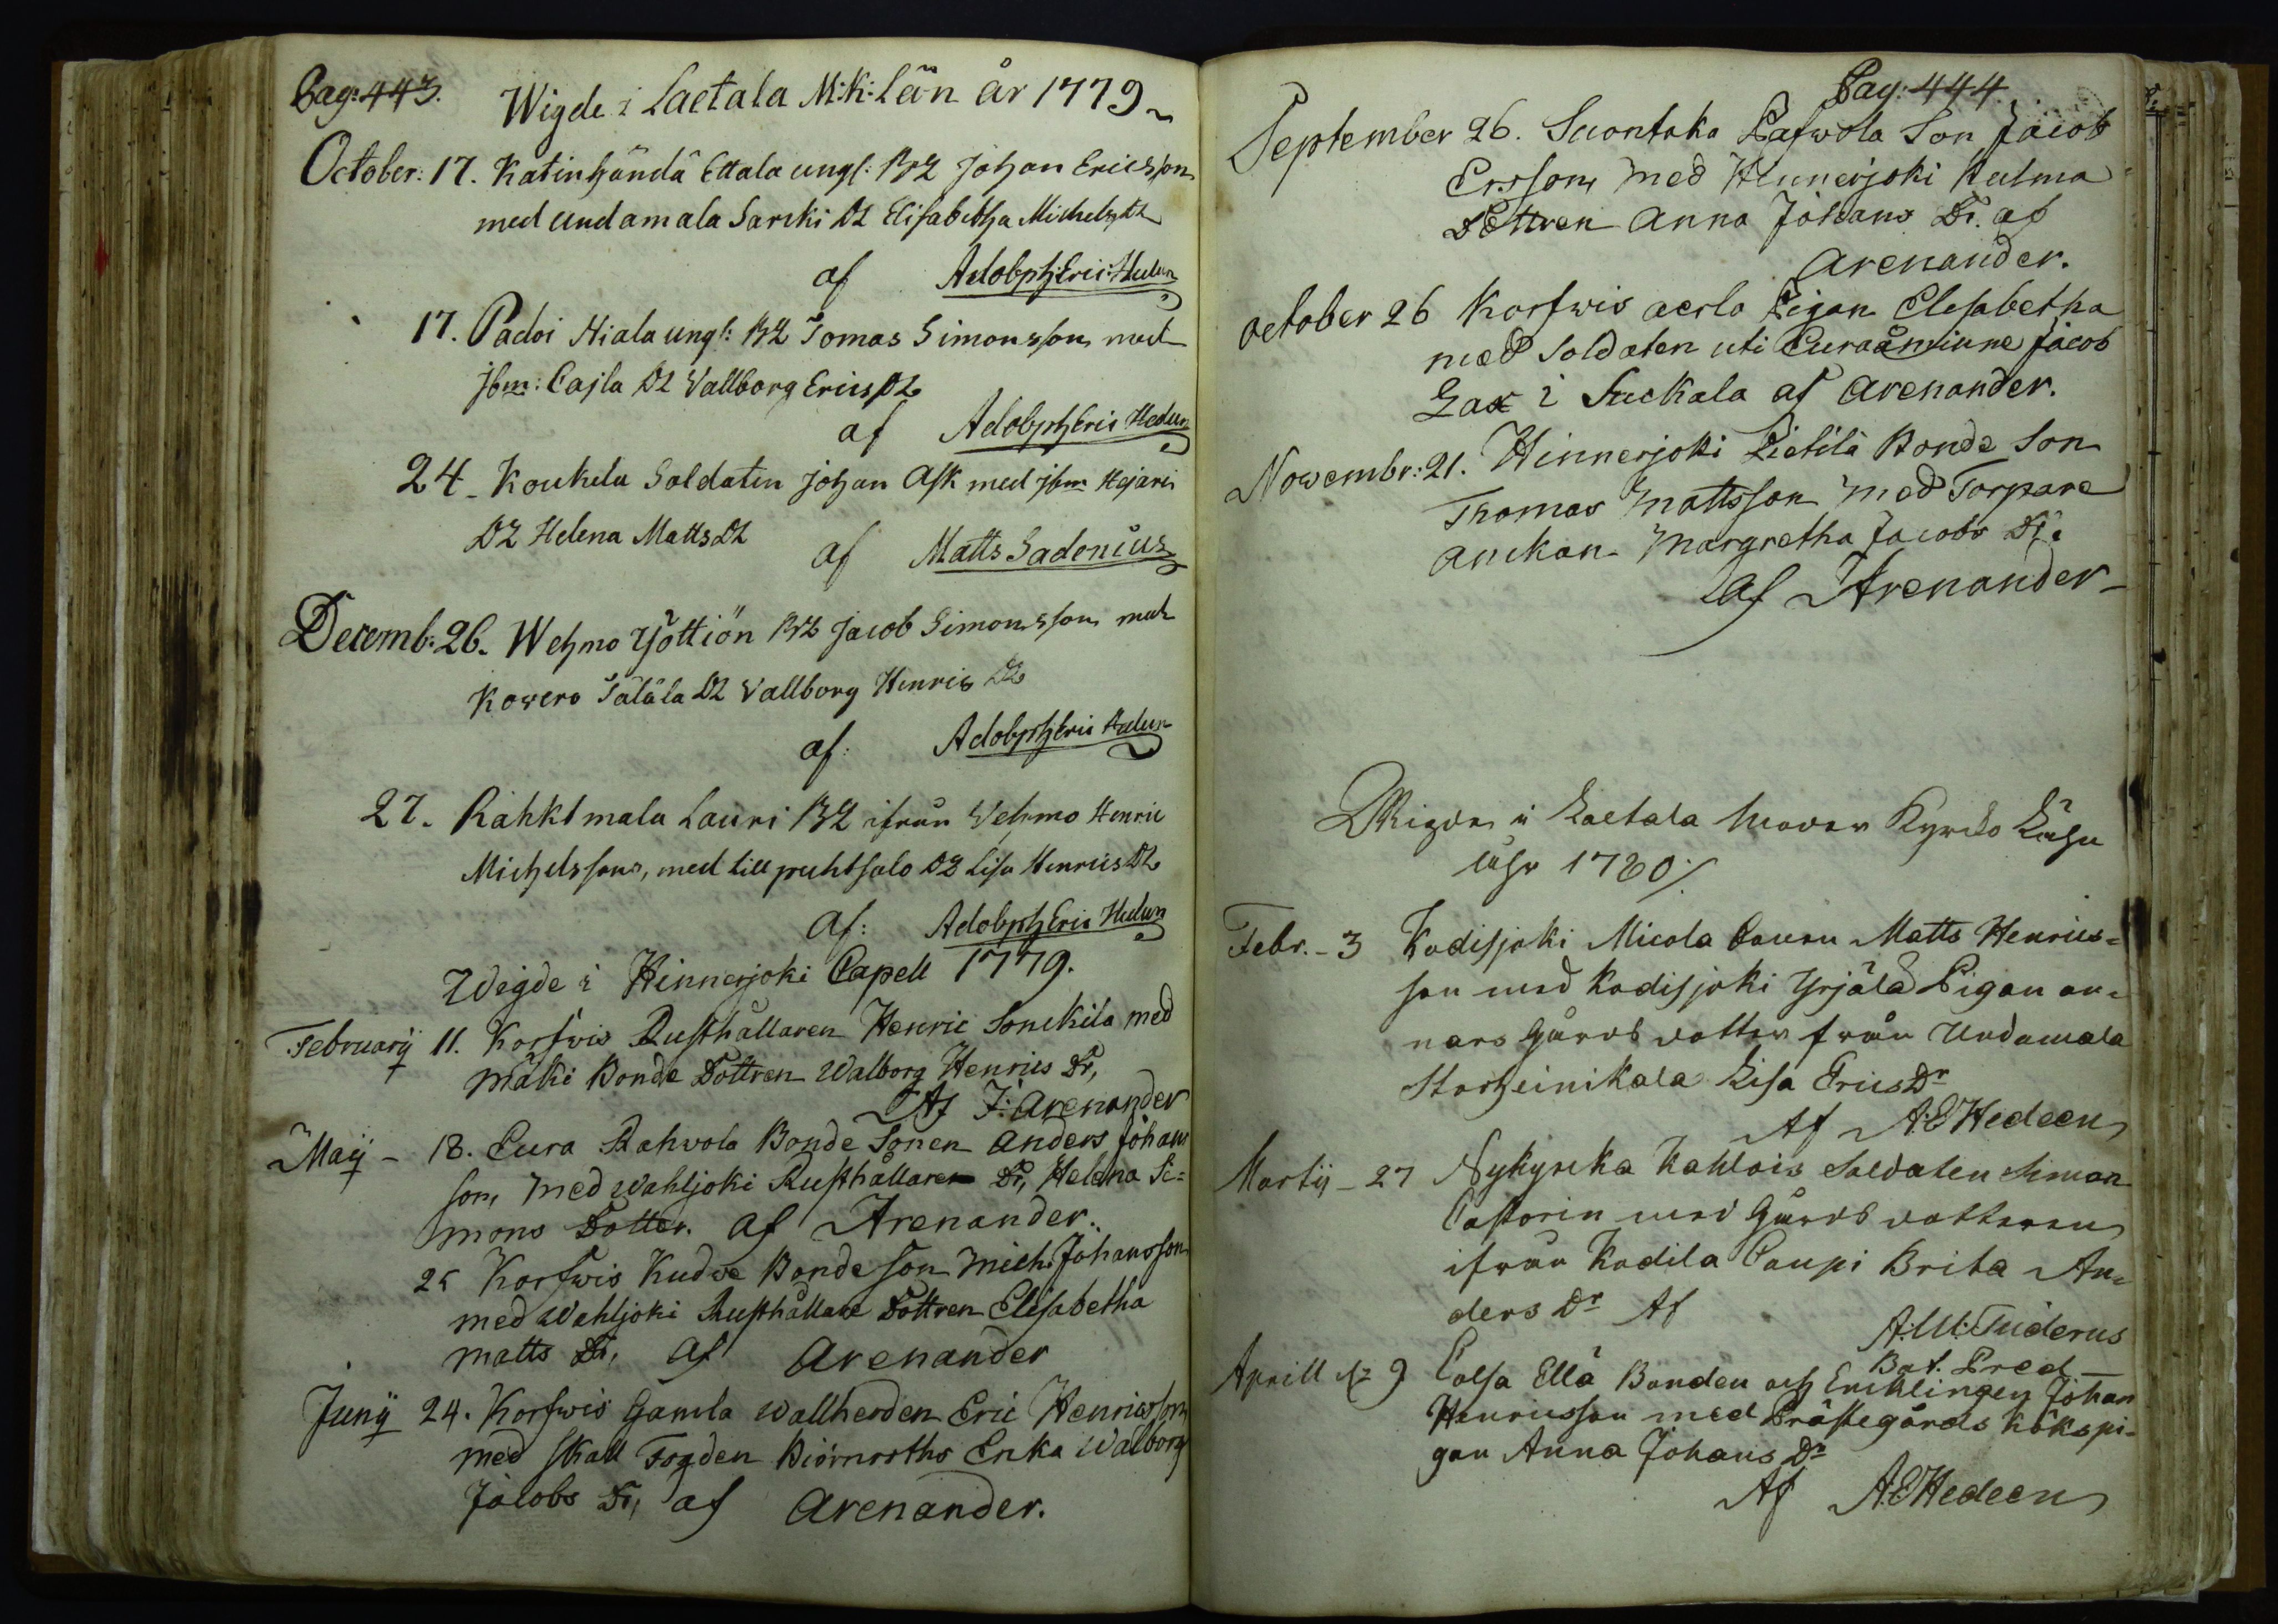 Pag: 443.
Wigde i Laetala M:K: Län år 1779
October: 17. Katinhändä Ettala ungl: Br Johan Ericsson
med undamala Sarcki Dr Elisabetha Michels Dr
af Adolph Eric: Hedeen
17. Padoi Hiala ungl: Br Tomas Simonsson med
jbm: Cajla Dr Vallborg Erics Dr
af Adolph Eric Hedeen
24 Koukela Soldaten Johan Ask med jbm Hejari
Dr Helena Matts Dr
af Matts Sadenius
Decemb: 26. Wehmo Yöttiön Br Jacob Simonsson med
Kowero Tälälä Dr Vallborg Henrics Dr
af: Adolph Eric Hedeen
27. Rahktmala Lauri Br ifrån Vehmo Henric
Michelsson, med till puhtsalo Dr Lisa Henrics Dr
Af: Adolph Eric Hedeen
Wigde i Hinnerjoki Capell 1779.
Februarij 11. Korfwis Rusthållaren Henric Sonckila med
mäki Bonde Dottren Walborg Henrics Dr,
Af J: Arenander
Maij - 18. Eura Rahvola Bonde Sonen Anders Johans
son, med Wahljoki Rusthållaren Dr, Helena Si=
mons Dotter. af Arenander.
25 Korfwis Kudve Bonde Son Mich: Johansson
med Wahljoki Rusthållare Dottren Elisabetha
Matts Dr, af Arenander
Junij 24. Korfwis Gamla Wallherden Eric Henricsson
med skall Fogden Biörnroths Enka Walborg
Jacobs Dr, af Arenander.
Pag: 444.
September 26. Suontaka Lafwola Son Jacob
Ersson, med Hinnerjoki Kulma
Dottren Anna Johans Dr. af
Arenander.
October 26 Korfwis aerla Pigan Elisabetha
med Soldaten uti Euraåminne Jacob
Lax i Suckala af Arenander.
Nowembr: 21. Hinnerjoki Pietilä Bonde Son
Thomas Mattsson med Torpare
anckan Margretha Jacobs Dr.
af Arenander
Wigde i Laetala Moder Kyrcko Lähn
åhr 1780
Febr. - 3 Kodisjoki Micola Matts Henrics=
son med Kodisjoki Yrjälä Pigan an=
nars gårds dotter från Undamala
Storheinikala Lisa Erics Dr
Af A:E Hedeen
Martij - 27 Nykyrcka Kahlois Soldaten Simon
Castorin med gårds dotteren
ifrån Kodila Caupi Brita An=
ders Dr Af
A:W: Tuiderus
Bat. Pred
Aprill 9 Colsa Ellä Bonden och Encklingen Johan
Henricsson med Prästegårds kökspi=
gan Anna Johans Dr
Af A:E Hedeen